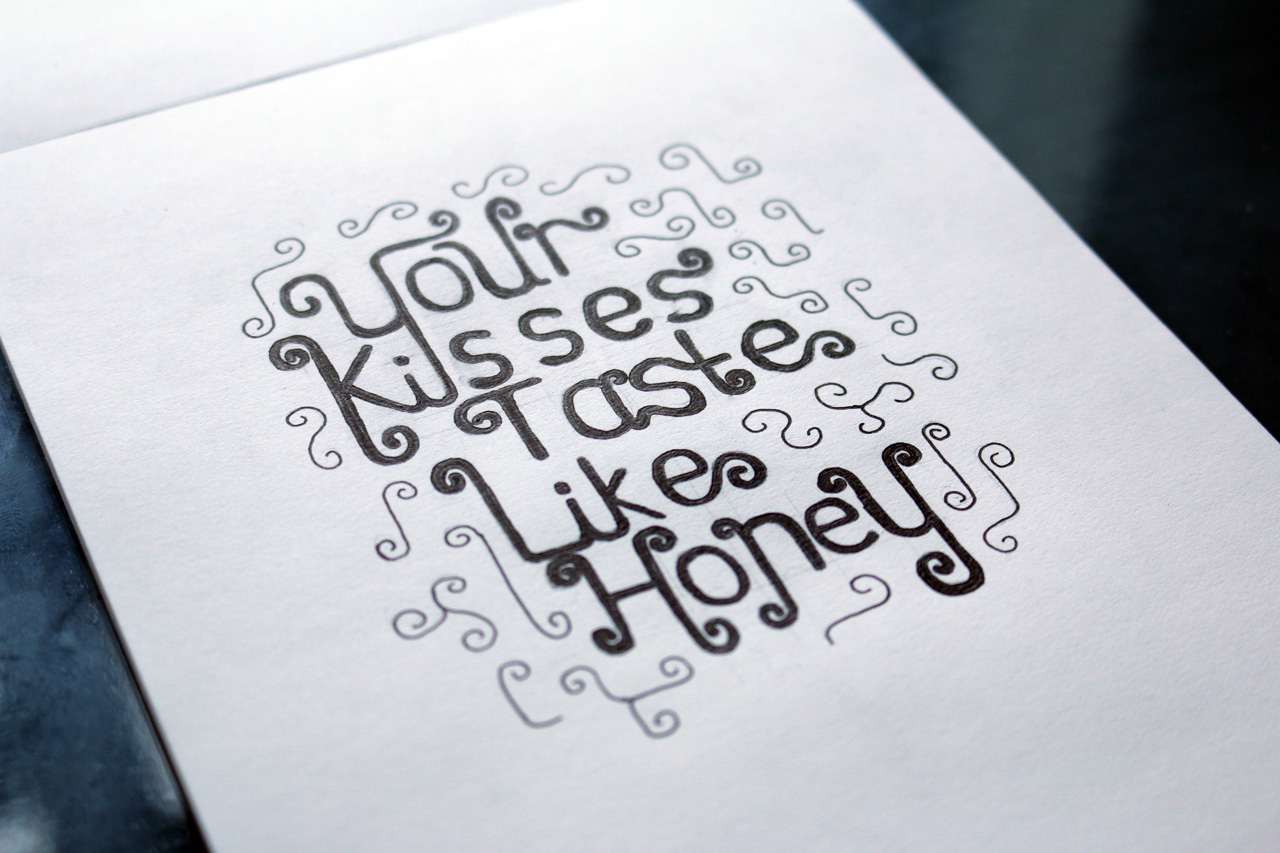 Your
Kisses
Taste
Like
Honey